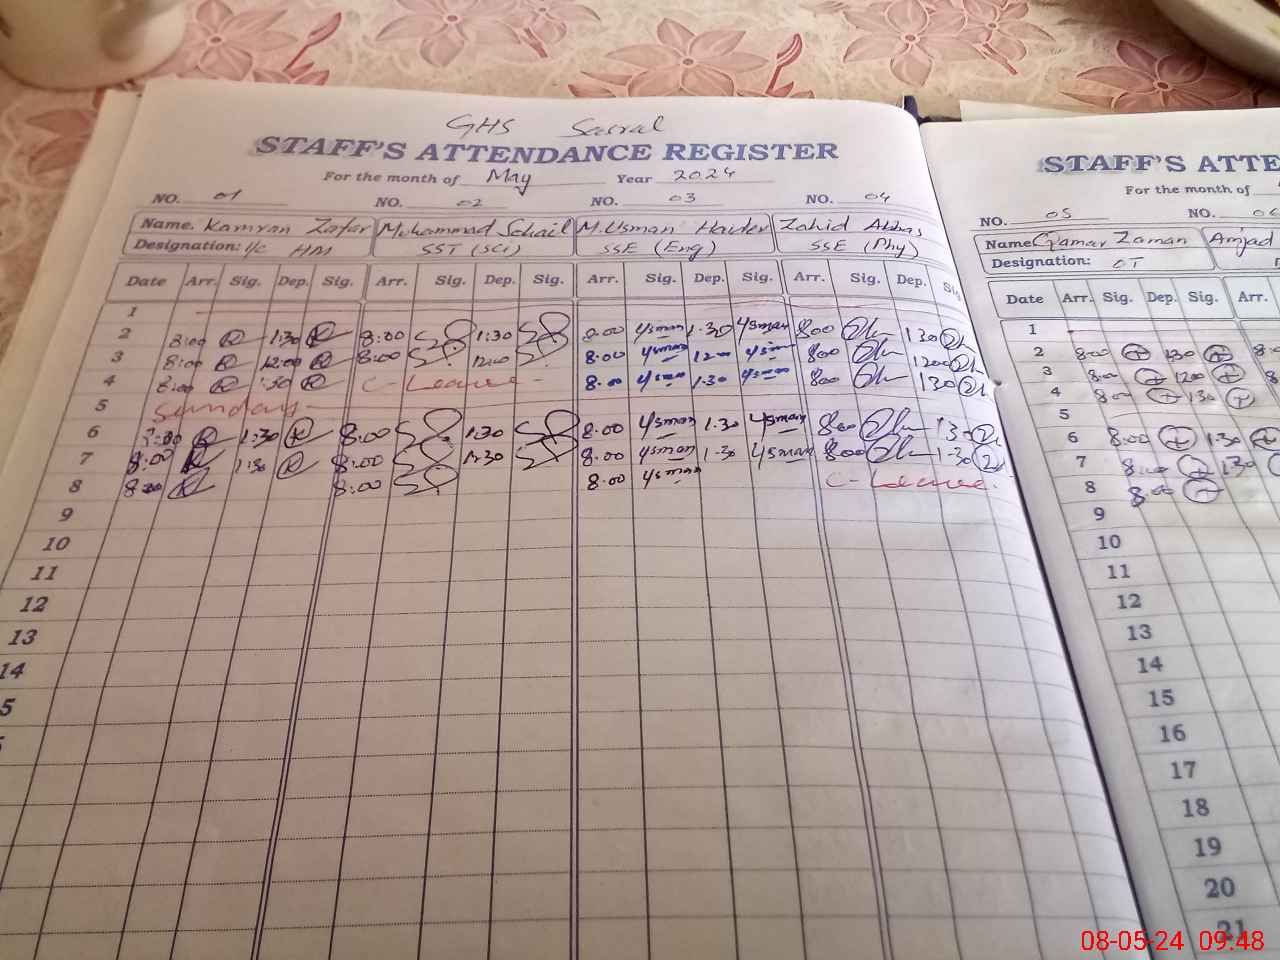 GHS Sasral
STAFF'S ATTENDANCE REGISTER
For the month of May Year 2024
NO. 01 NO. 02 NO. 03 NO. 04
Name. Kamran Zafar Muhammad Sohail M.Usman Haider Zahid Abbas
Designation: I/c HM SST (SCI) SSE (Eng) SSE (Phy)
Date Arr. Sig. Dep. Sig. Arr. Sig. Dep. Sig. Arr. Sig. Dep. Sig. Arr. Sig. Dep. Sig.
1
2 8:00 1:30 8:00 1:30 8.00 Usman 1.30 Usman 800 130
3 8:00 12:00 8:00 12:00 8.00 Usman 1200 Usman 800 1200
4 8:00 1:30 C-Leave- 8.00 Usman 1.30 Usman 800 130
5 Sunday-
6 1:30 8:00 1:30 8.00 Usman 1.30 Usman 800 130
7 8:00 1:30 8:00 1:30 8.00 Usman 1.30 Usman 800 1.30
8 8:00 8:00 8.00 Usman C-Leave.
9
10
11
12
13
14
5
STAFF'S ATTE
For the month of
NO. 05 NO.
Name. Qamar Zaman Amjad
Designation: OT
Date Arr. Sig. Dep. Sig. Arr.
1
2 8:00 130
3 8:00 1200
4 800 130
5
6 8:00 1.30
7 8:00 1:30
8 8:00
9
10
11
12
13
14
15
16
17
18
19
20
21
08-05-24 09:48